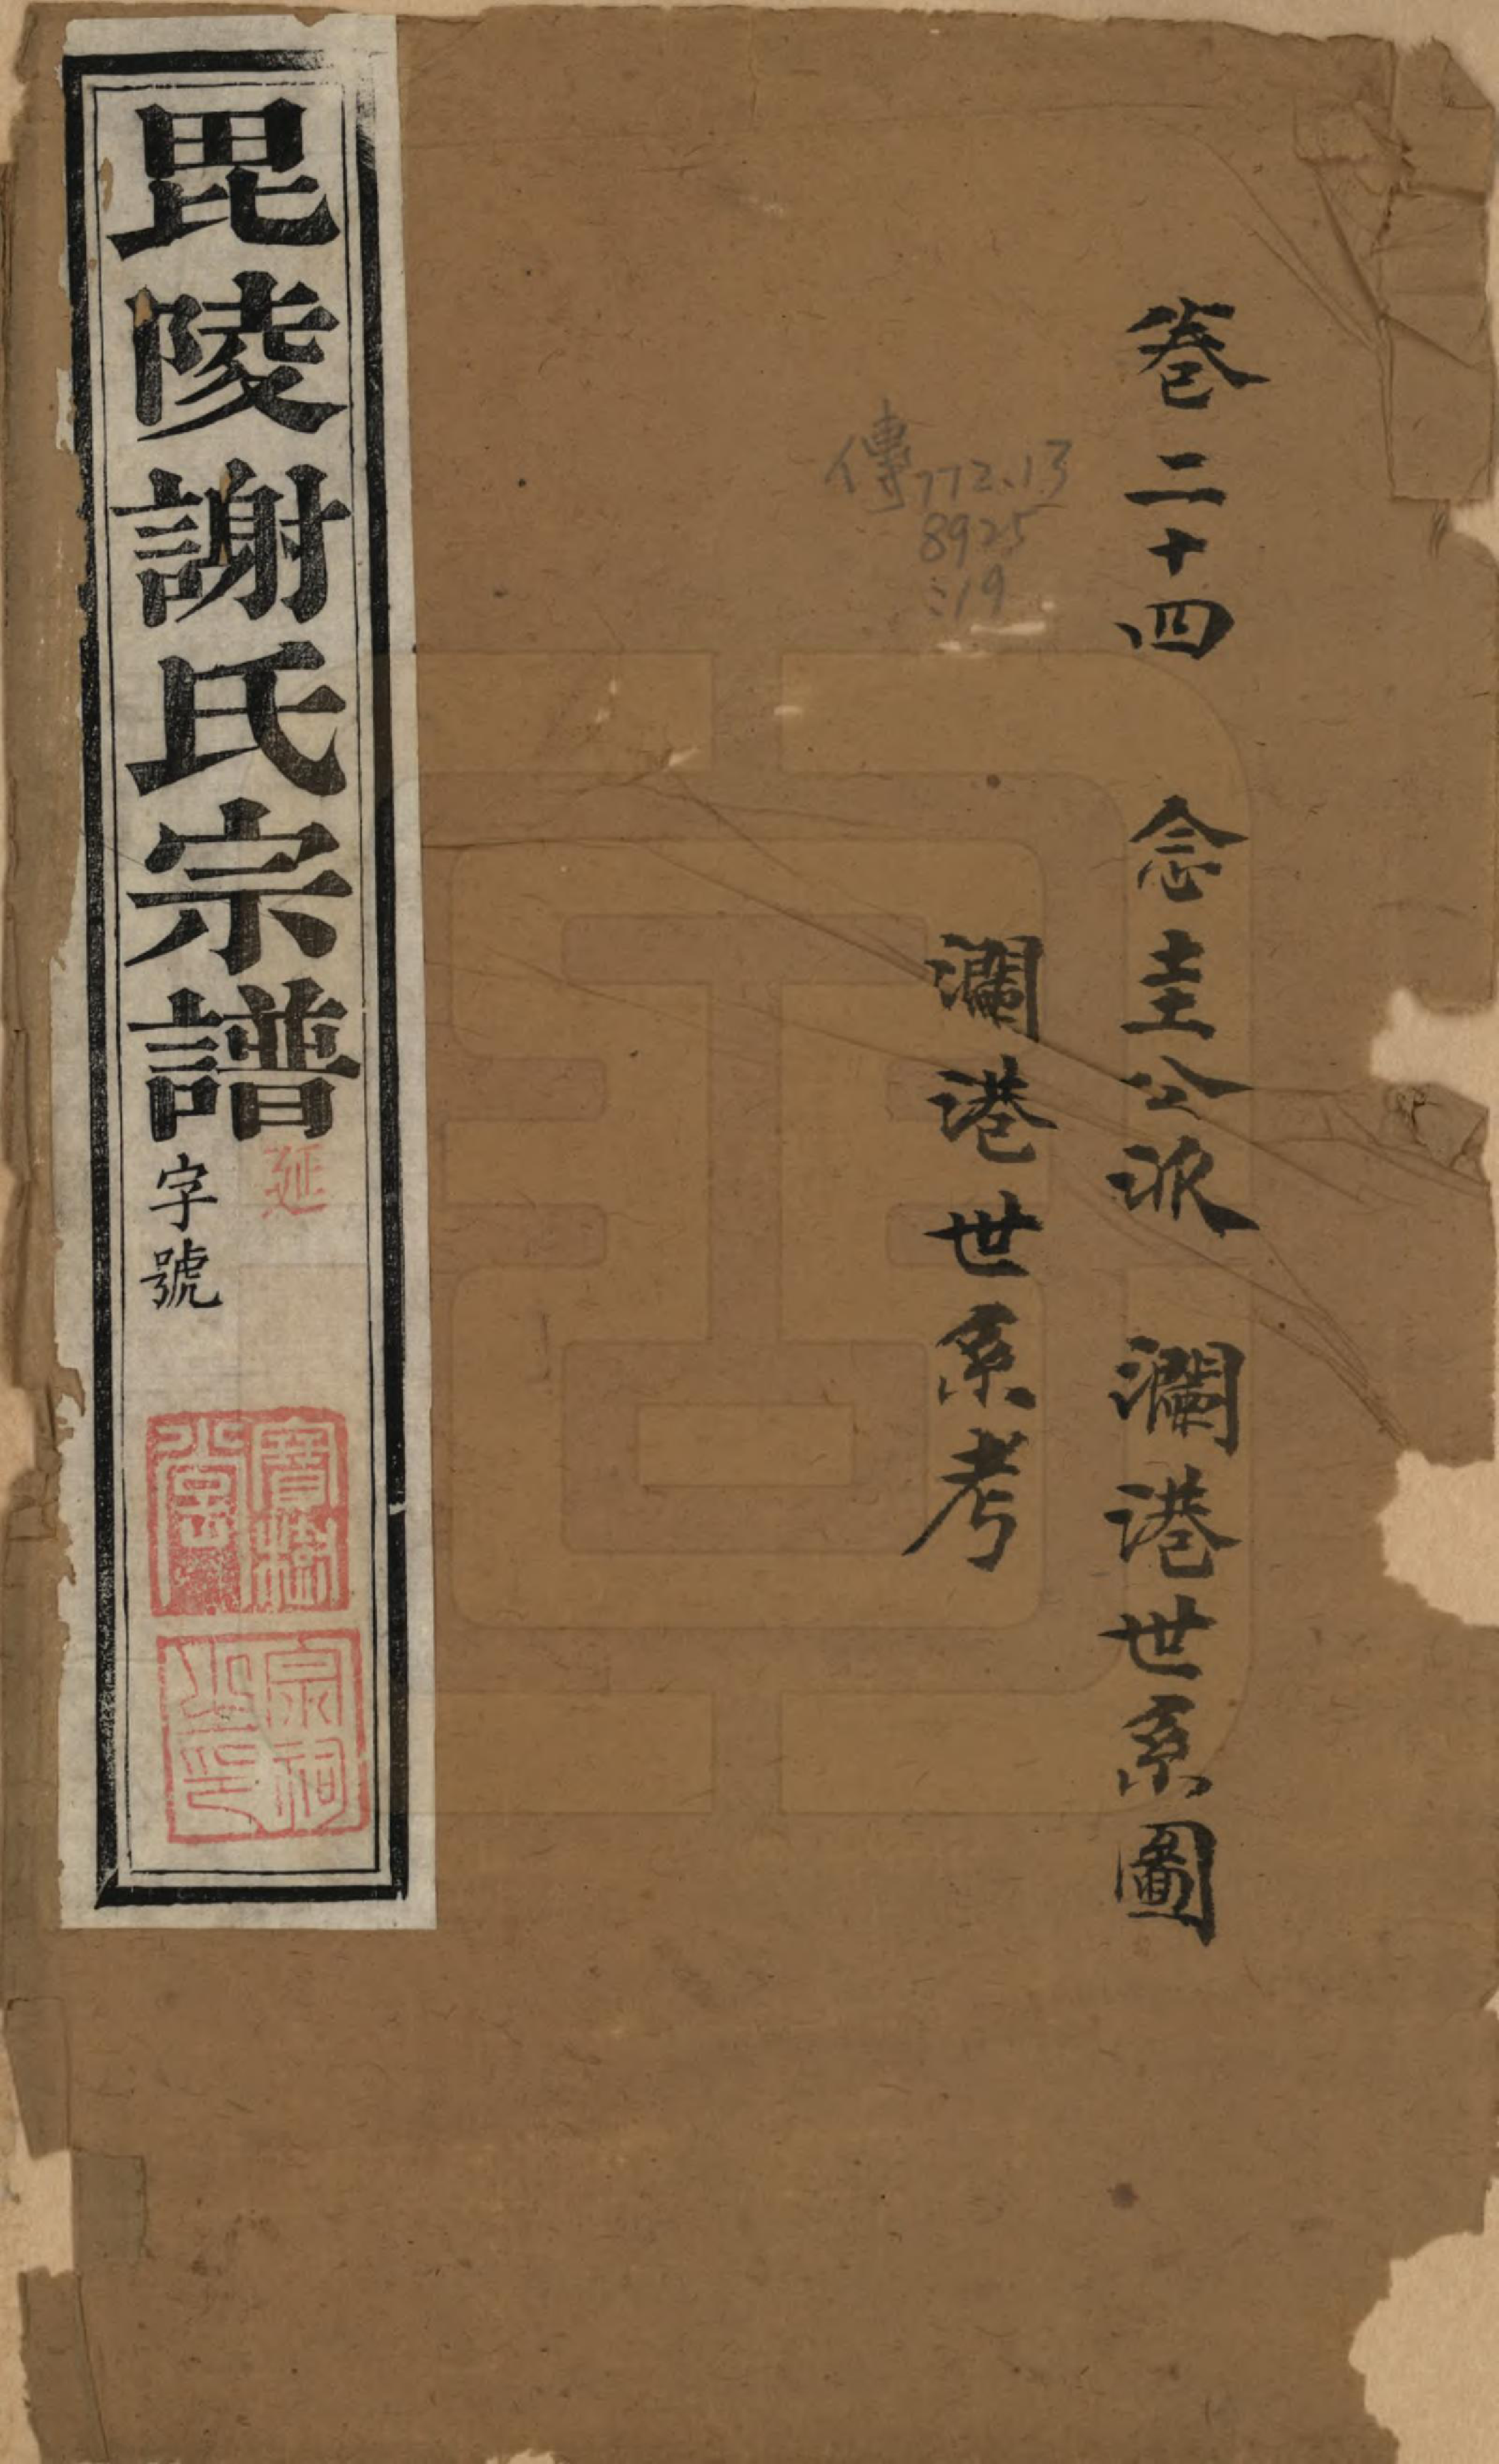 卷二十四 念圭公派 瀾港世系圖
瀾港世系考
傳772.13
8925
:19
毘陵謝氏宗譜
延
字號
寶樹堂
宗祠之印